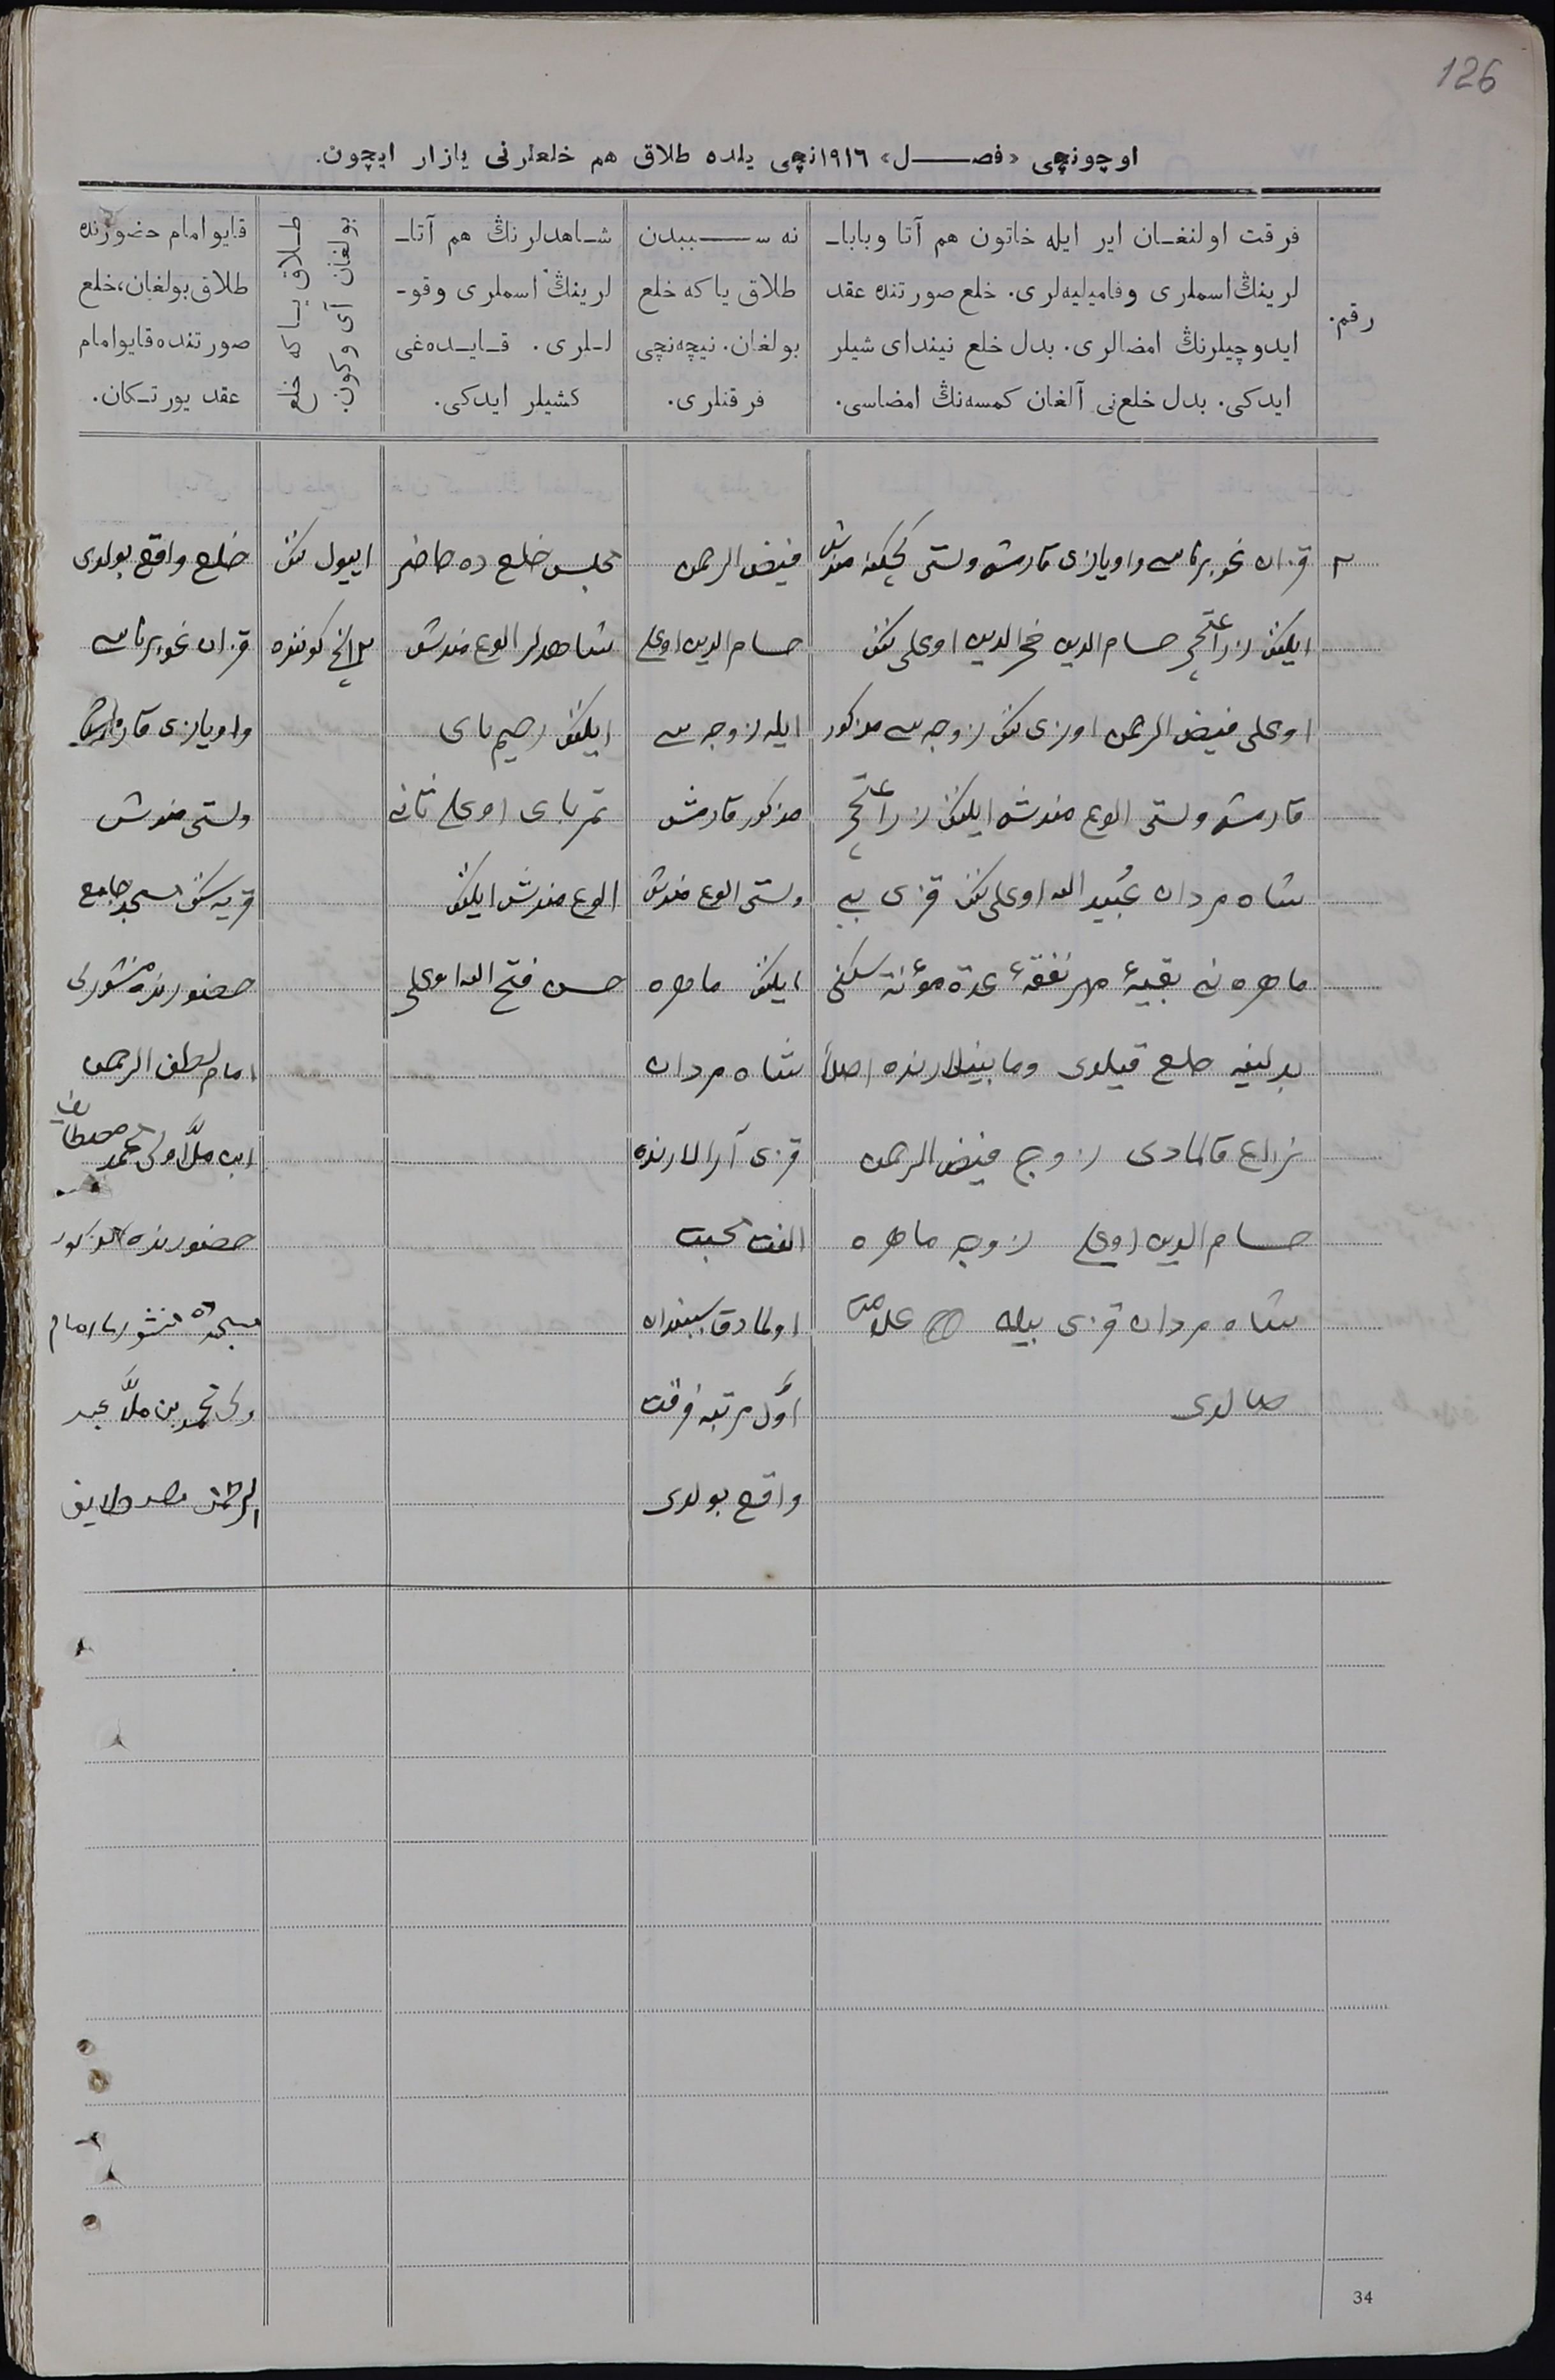 126
اوچونچی «فصل» ١٩١٦نچی یلده طلاق هم خلعلرنی یازار ایچون.
رقم.
فرقت اولنغان ایر ایله خاتون هم آتا وبابا-
لرینڭ اسملری وفامیلیه‌لری. خلع صورتنده عقد
ایدوچیلرنڭ امضالری. بدل خلع نیندای شیلر
ایدکی. بدل خلعنی آلغان کمسه‌نڭ امضاسی.
نه سببدن
طلاق یا که خلع
بولغان. نیچه‌نچی
فرقتلری.
شاهدلرنڭ هم آتا-
لرینڭ اسملری وقو-
للری. قایده‌غی
کشیلر ایدکی.
طلاق یا که خلع
بولغان آی وکون.
قایو امام حضورنده
طلاق بولغان، خلع
صورتنده قایو امام
عقد یورتکان.
٢
قزان غوبرناسی واویازی قارمش ولستی کچکنه مندش
ایلنڭ حسام الدین فخرالدین اوغلی نڭ
اوغلی فیض الرحمن اوزی نڭ زوجه سی مذکور
قارمش ولستی الوغ مندش ایلنڭ
شاه مردان عُبید الله اوغلی نڭ قزی بی بی
ماهره نی بقیهٔ مهر نفقهٔ عدة مؤنة سکنی
بدلینه خلع قیلدی ومابینلارنده اصلا
نزاع قالمادی زوج فیض الرحمن
حسام الدین اوغلی زوجه ماهره
شاه مردان قزی بیله علامت
صالدی
فیض الرحمن
حسام الدین اوغلی
ایله زوجه سی
مذکور قارمش
ولستی الوغ مندش
ایلنڭ ماهره
شاه مردان
قزی آرالارنده
الفت محبت
اولمادق سببندان
اوّل مرتبه فرقت
واقع بولدی
مجلس خلع ده حاضر
شاهدلر الوغ مندش
ایلنڭ رحیم بای
تمربای اوغلی ثانی
الوغ مندش ایلنڭ
حسن فتح الله اوغلی
اییول نڭ
کوننده
خلع واقع بولدی
قزان غوبرناسی
واویازی قارمش
ولستی مندش
قریه سنڭ مسجد جامع
حضورنده منشورلی
امام لطف الرحمن
ابن ملّا ولی محمد
حضورنده مذکور
مسجدده منشورلی امام
ولی محمد بن ملّا عبد
الرحمن
34